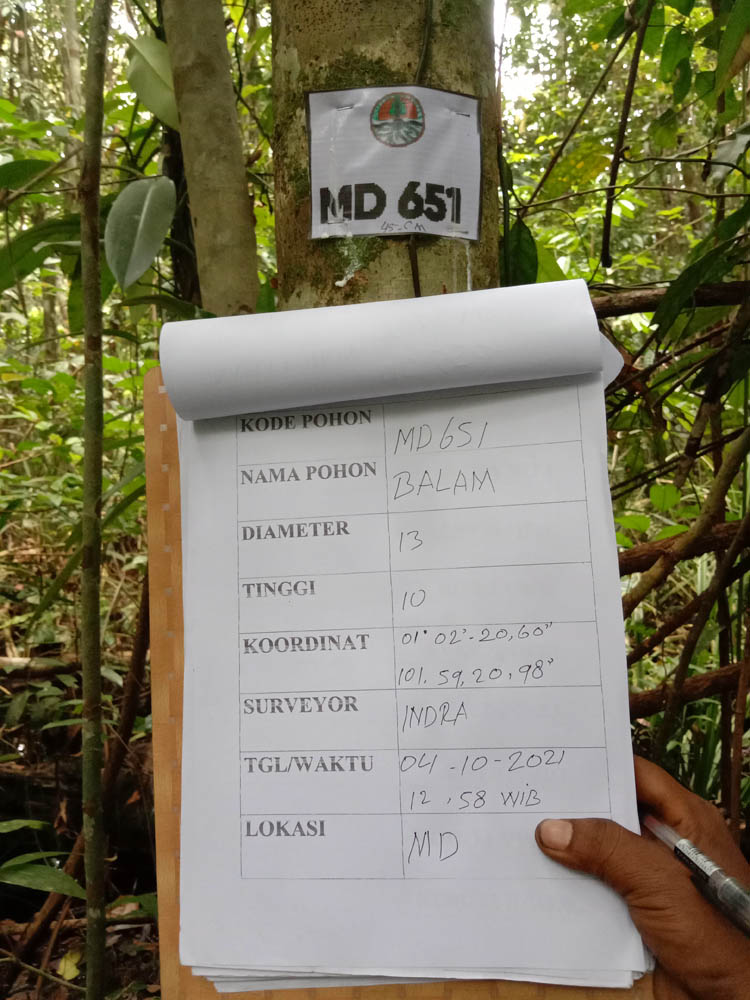 MD 651
45 CM
KODE POHON MD 651
NAMA POHON BALAM
DIAMETER 13
TINGGI 10
KOORDINAT 01° 02'-20,60"
101. 59, 20, 98"
SURVEYOR INDRA
TGL/WAKTU 04 -10-2021
12 , 58 WIB
LOKASI MD